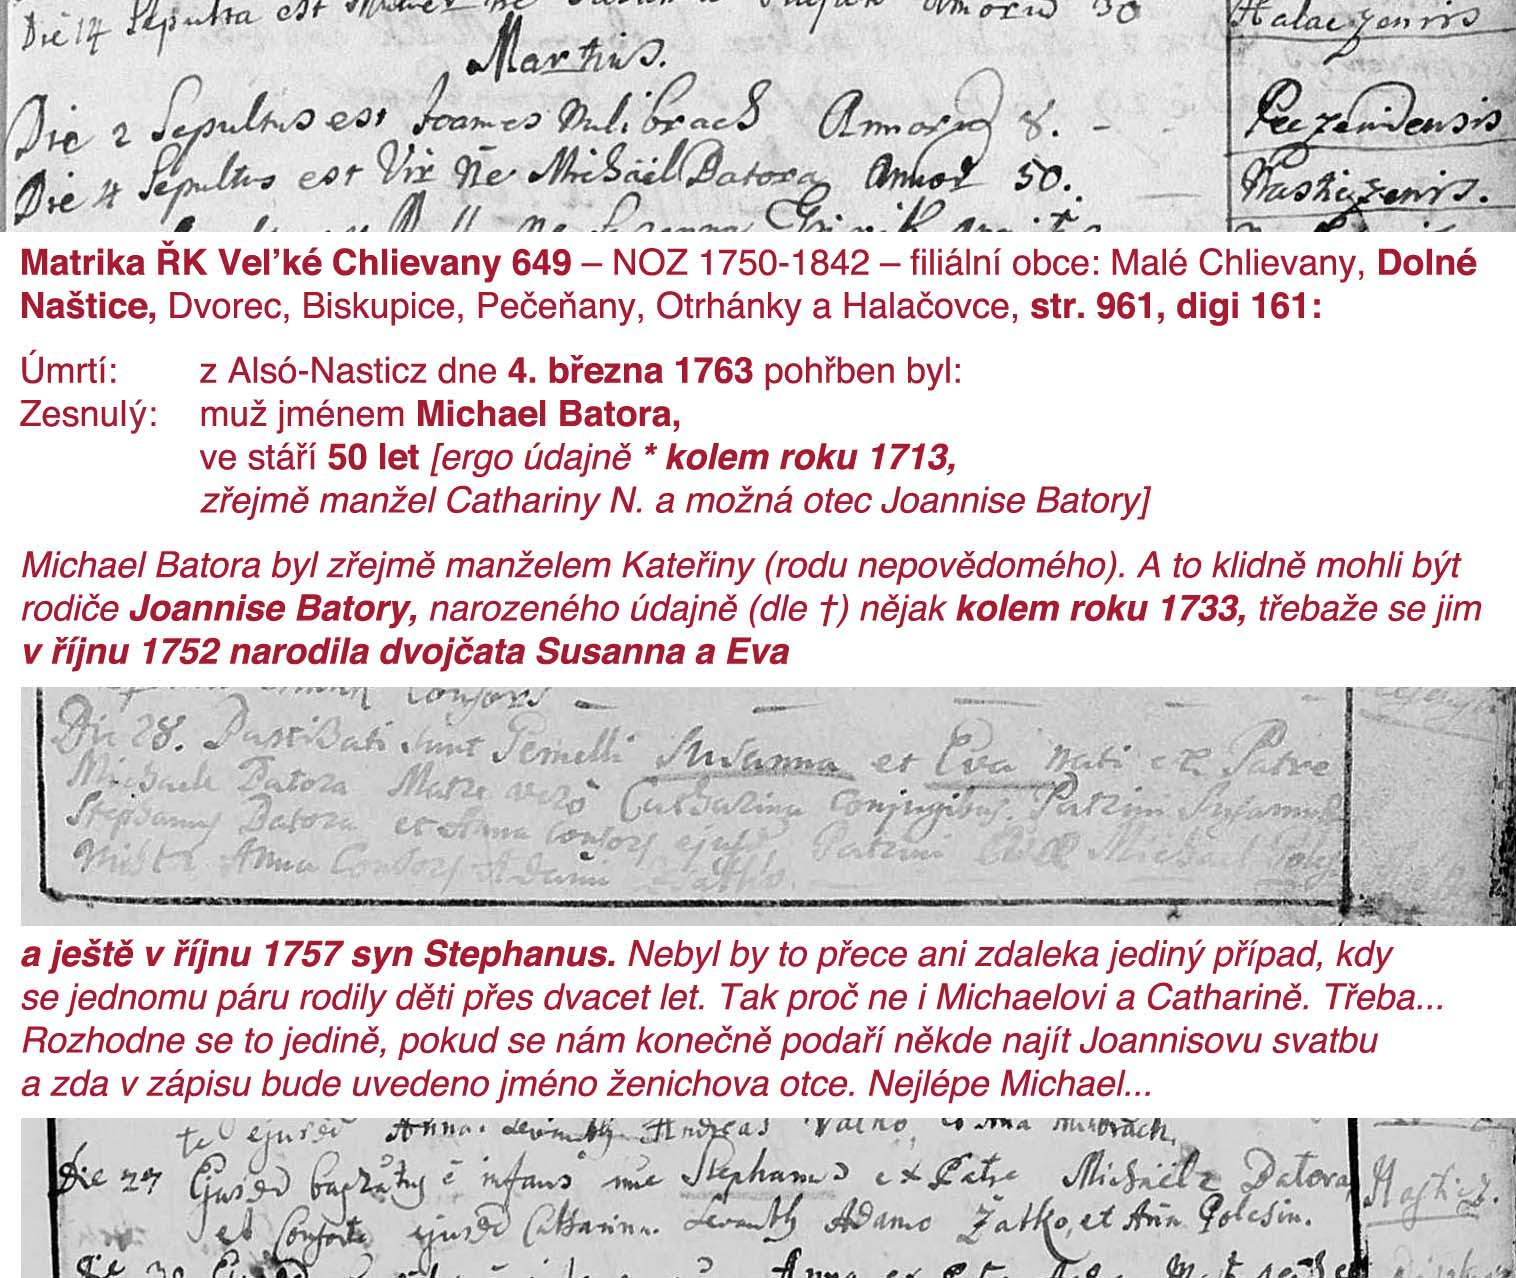 Die 14 Sepulta est Annorum 30 Halaczenris
Martius.
Die 2 Sepultus est Joannes Mulibrach Annorum 8. - - Peczenidensis
Die 4 Sepultus est Vir Ne Michaël Batora Annor 50. Nasticzenris.
Matrika ŘK Vel’ké Chlievany 649 – NOZ 1750-1842 – filiální obce: Malé Chlievany, Dolné
Naštice, Dvorec, Biskupice, Pečeňany, Otrhánky a Halačovce, str. 961, digi 161:
Úmrtí: z Alsó-Nasticz dne 4. března 1763 pohřben byl:
Zesnulý: muž jménem Michael Batora,
ve stáří 50 let [ergo údajně * kolem roku 1713,
zřejmě manžel Cathariny N. a možná otec Joannise Batory]
Michael Batora byl zřejmě manželem Kateřiny (rodu nepovědomého). A to klidně mohli být
rodiče Joannise Batory, narozeného údajně (dle †) nějak kolem roku 1733, třebaže se jim
v říjnu 1752 narodila dvojčata Susanna a Eva
Consors
Die 28. Baptisati sunt Gemelli Susanna et Eva nati ex Patre
Michaele Batora Matre verò Catharina Conjugibus. Patrini Susannae
Stephanus Batora et Anna Consors ejusd Patrini Evae Michael
Anna Consors Adami Zatko.
a ještě v říjnu 1757 syn Stephanus. Nebyl by to přece ani zdaleka jediný případ, kdy
se jednomu páru rodily děti přes dvacet let. Tak proč ne i Michaelovi a Catharině. Třeba...
Rozhodne se to jedině, pokud se nám konečně podaří někde najít Joannisovu svatbu
a zda v zápisu bude uvedeno jméno ženichova otce. Nejlépe Michael...
te ejusd Anna. Levantib Andreas Vatko,
Die 27 Ejusd bapzatus e infans nne Stephanus ex Patre Michaële Batora Nasticz.
et Consorte ejusd Catharina. Levantib Adamo Zatko, et Anna Polesin.